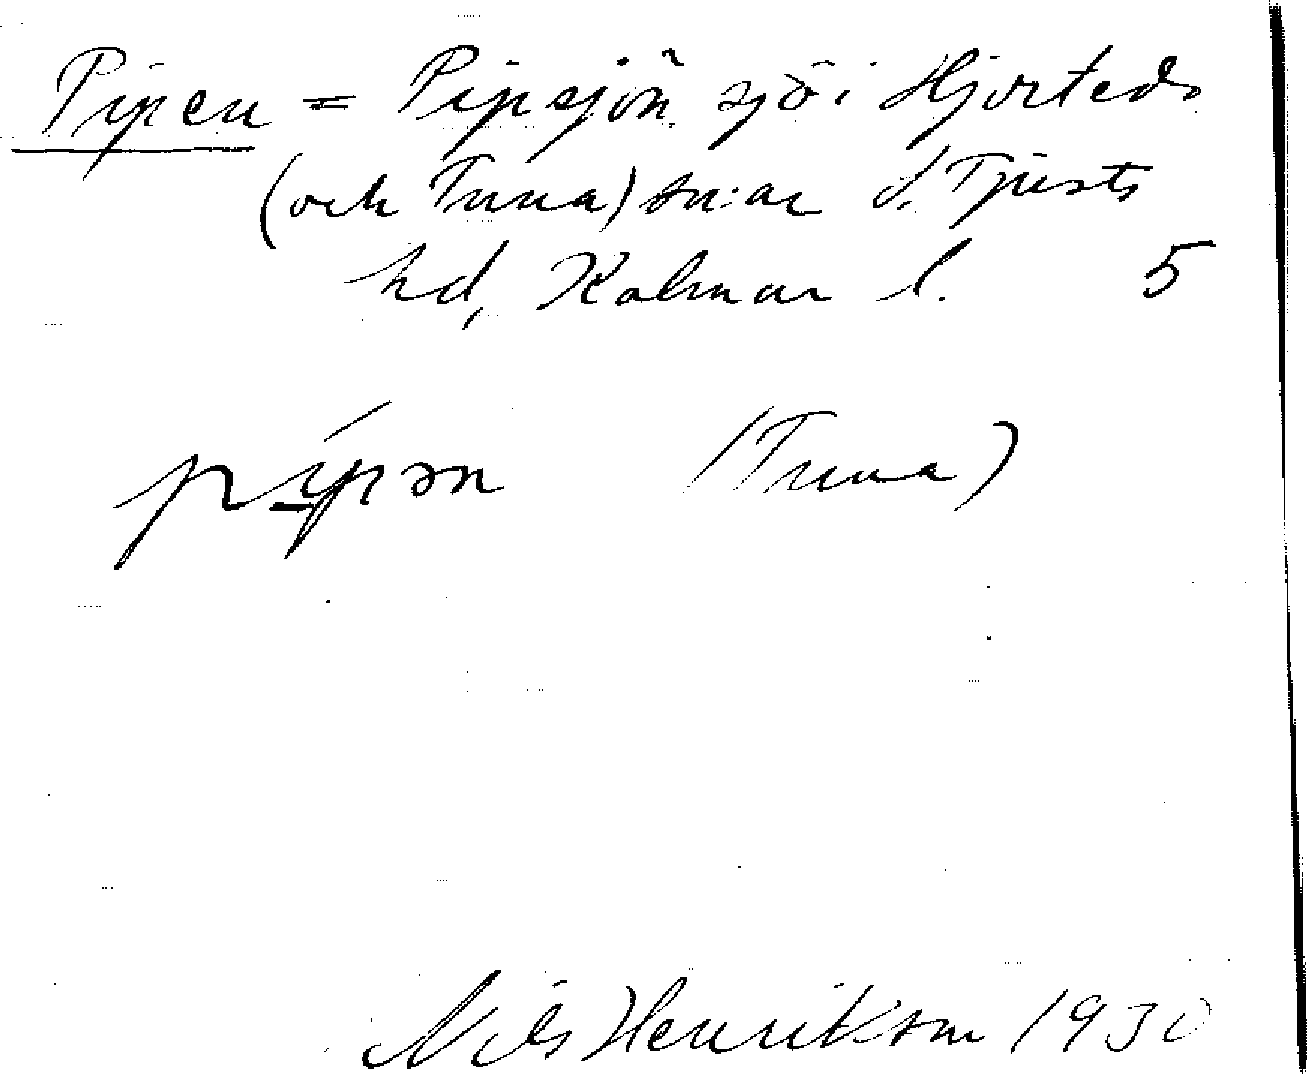 Pipen = Pipsjön sjö i Hjorteds
(och Tuna) sn:ar S. Tjusts
hd, Kalmar l. 5
pi̱´pən (Tuna)
Nils Henrikson 1930